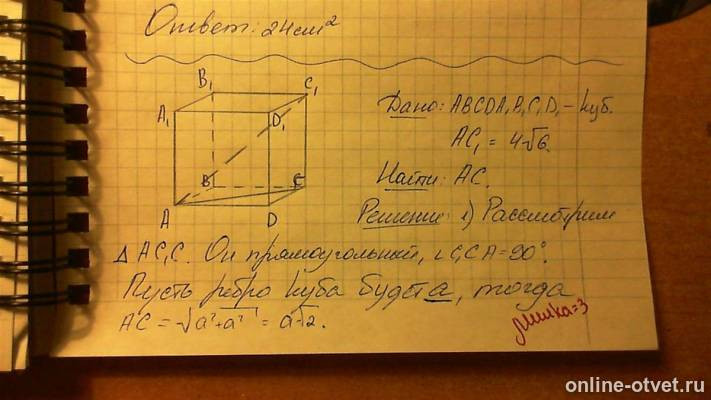 Ответ: 24 см²
B₁ C₁
A₁ D₁
B C
A D
Дано: ABCDA₁B₁C₁D₁ – куб.
AC₁ = 4√6.
Найти: AC.
Решение: 1) Рассмотрим
△ AC₁C. Он прямоугольный, ∠C₁CA = 90°.
Пусть ребро куба будет a, тогда
AC = √a²+a² = a√2.
Мишка=3
online-otvet.ru